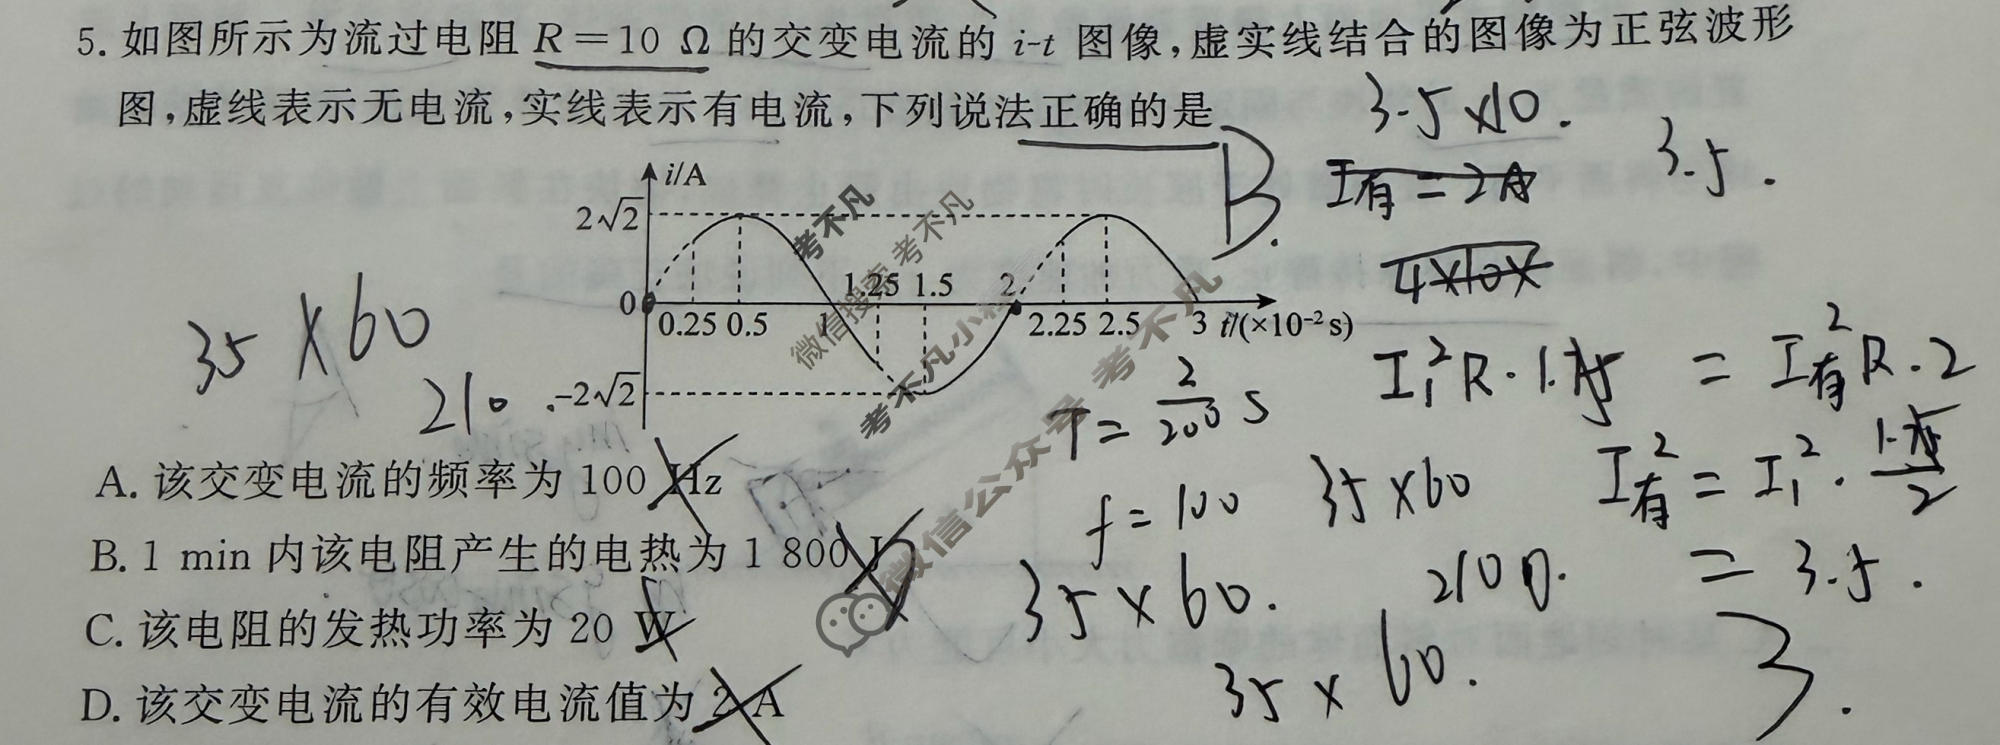 5. 如图所示为流过电阻 R=10 Ω 的交变电流的 i-t 图像,虚实线结合的图像为正弦波形
图,虚线表示无电流,实线表示有电流,下列说法正确的是
B.
3.5×10.
3.5.
I有=2A
4×10×
i/A
2√2
0
0.25 0.5 1 1.25 1.5 2 2.25 2.5 3 t/(×10⁻² s)
-2√2
35×60
210.
T=2/200 s
I₁²R·1.75 = I有²R·2
f=100
35×60
I有²=I₁²·1.75/2
35×60.
2100.
=3.5.
35×60.
3.
A. 该交变电流的频率为 100 Hz
B. 1 min 内该电阻产生的电热为 1 800 J
C. 该电阻的发热功率为 20 W
D. 该交变电流的有效电流值为 2 A
考不凡
微信搜索 考不凡
考不凡小程序
微信公众号 考不凡